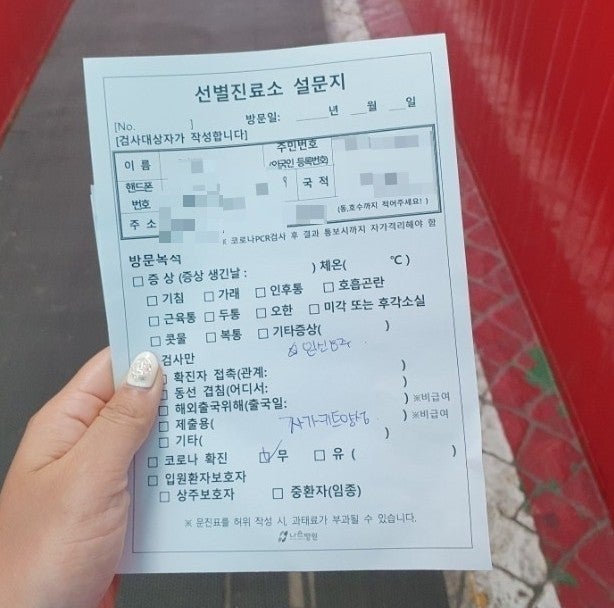 선별진료소 설문지
[No. ] 방문일: ____년 ___월 ___일
[검사대상자가 작성합니다]
이 름 주민번호
(외국인 등록번호)
핸드폰
번호 국 적
주 소 (동,호수까지 적어주세요!)
※ 코로나PCR검사 후 결과 통보시까지 자가격리해야 함
방문목적
□ 증 상 (증상 생긴날 : ) 체온( ℃ )
□ 기침 □ 가래 □ 인후통 □ 호흡곤란
□ 근육통 □ 두통 □ 오한 □ 미각 또는 후각소실
□ 콧물 □ 복통 □ 기타증상( )
검사만
확진자 접촉(관계: )
□ 동선 겹침(어디서: )
□ 해외출국위해(출국일: ) ※비급여
□ 제출용( ) ※비급여
□ 기타( 자가키트양성 )
□ 코로나 확진 ☑ 무 □ 유 ( )
□ 입원환자보호자
□ 상주보호자 □ 중환자(임종)
※ 문진표를 허위 작성 시, 과태료가 부과될 수 있습니다.
나은병원